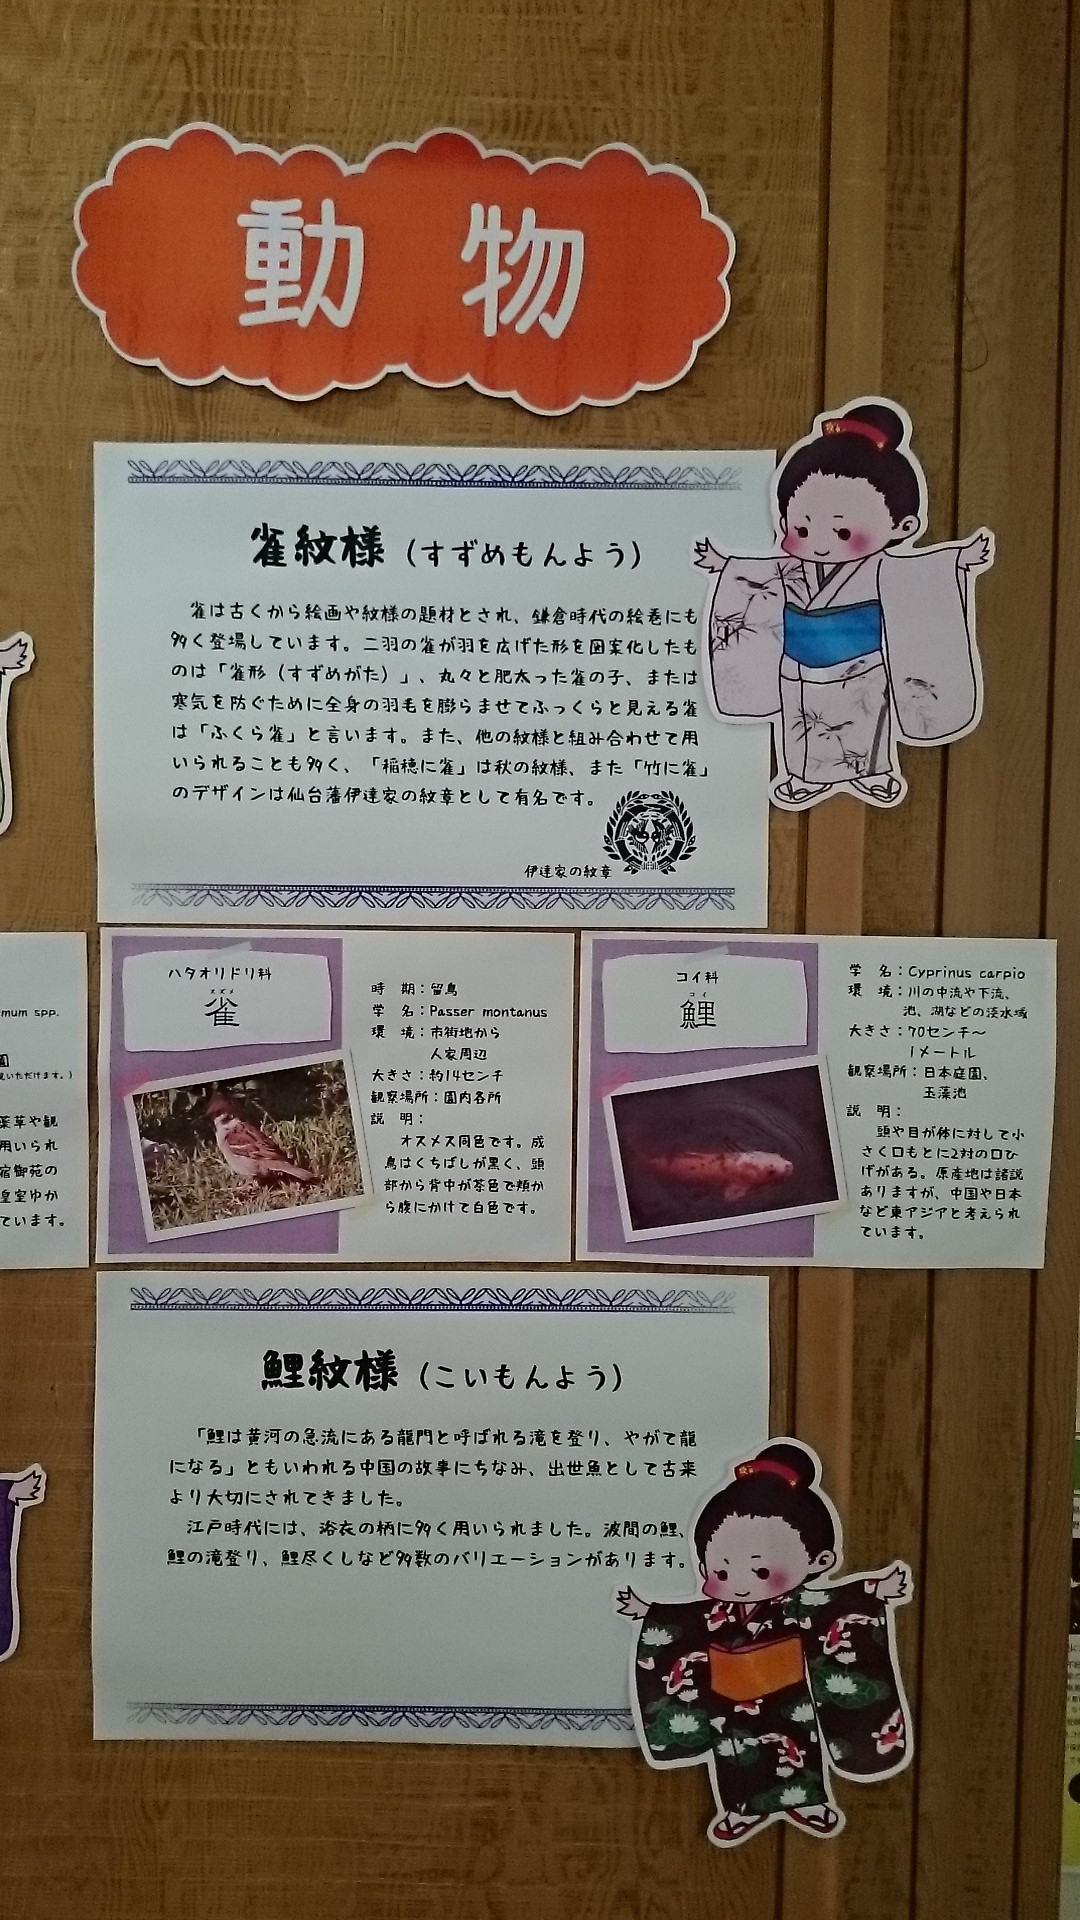 動物
雀紋様（すずめもんよう）
雀は古くから絵画や紋様の題材とされ、鎌倉時代の絵巻にも
多く登場しています。二羽の雀が羽を広げた形を図案化したも
のは「雀形（すずめがた）」、丸々と肥太った雀の子、または
寒気を防ぐために全身の羽毛を膨らませてふっくらと見える雀
は「ふくら雀」と言います。また、他の紋様と組み合わせて用
いられることも多く、「稲穂に雀」は秋の紋様、また「竹に雀」
のデザインは仙台藩伊達家の紋章として有名です。
伊達家の紋章
mum spp.
園
覧いただけます。）
薬草や観
用いられ
宿御苑の
皇室ゆか
ています。
ハタオリドリ科
スズメ
雀
時　期：留鳥
学　名：Passer montanus
環　境：市街地から
人家周辺
大きさ：約14センチ
観察場所：園内各所
説　明：
オスメス同色です。成
鳥はくちばしが黒く、頭
部から背中が茶色で頬か
ら腹にかけて白色です。
コイ科
コイ
鯉
学　名：Cyprinus carpio
環　境：川の中流や下流、
池、湖などの淡水域
大きさ：70センチ～
1メートル
観察場所：日本庭園、
玉藻池
説　明：
頭や目が体に対して小
さく口もとに2対の口ひ
げがある。原産地は諸説
ありますが、中国や日本
など東アジアと考えられ
ています。
鯉紋様（こいもんよう）
「鯉は黄河の急流にある龍門と呼ばれる滝を登り、やがて龍
になる」ともいわれる中国の故事にちなみ、出世魚として古来
より大切にされてきました。
江戸時代には、浴衣の柄に多く用いられました。波間の鯉、
鯉の滝登り、鯉尽くしなど多数のバリエーションがあります。